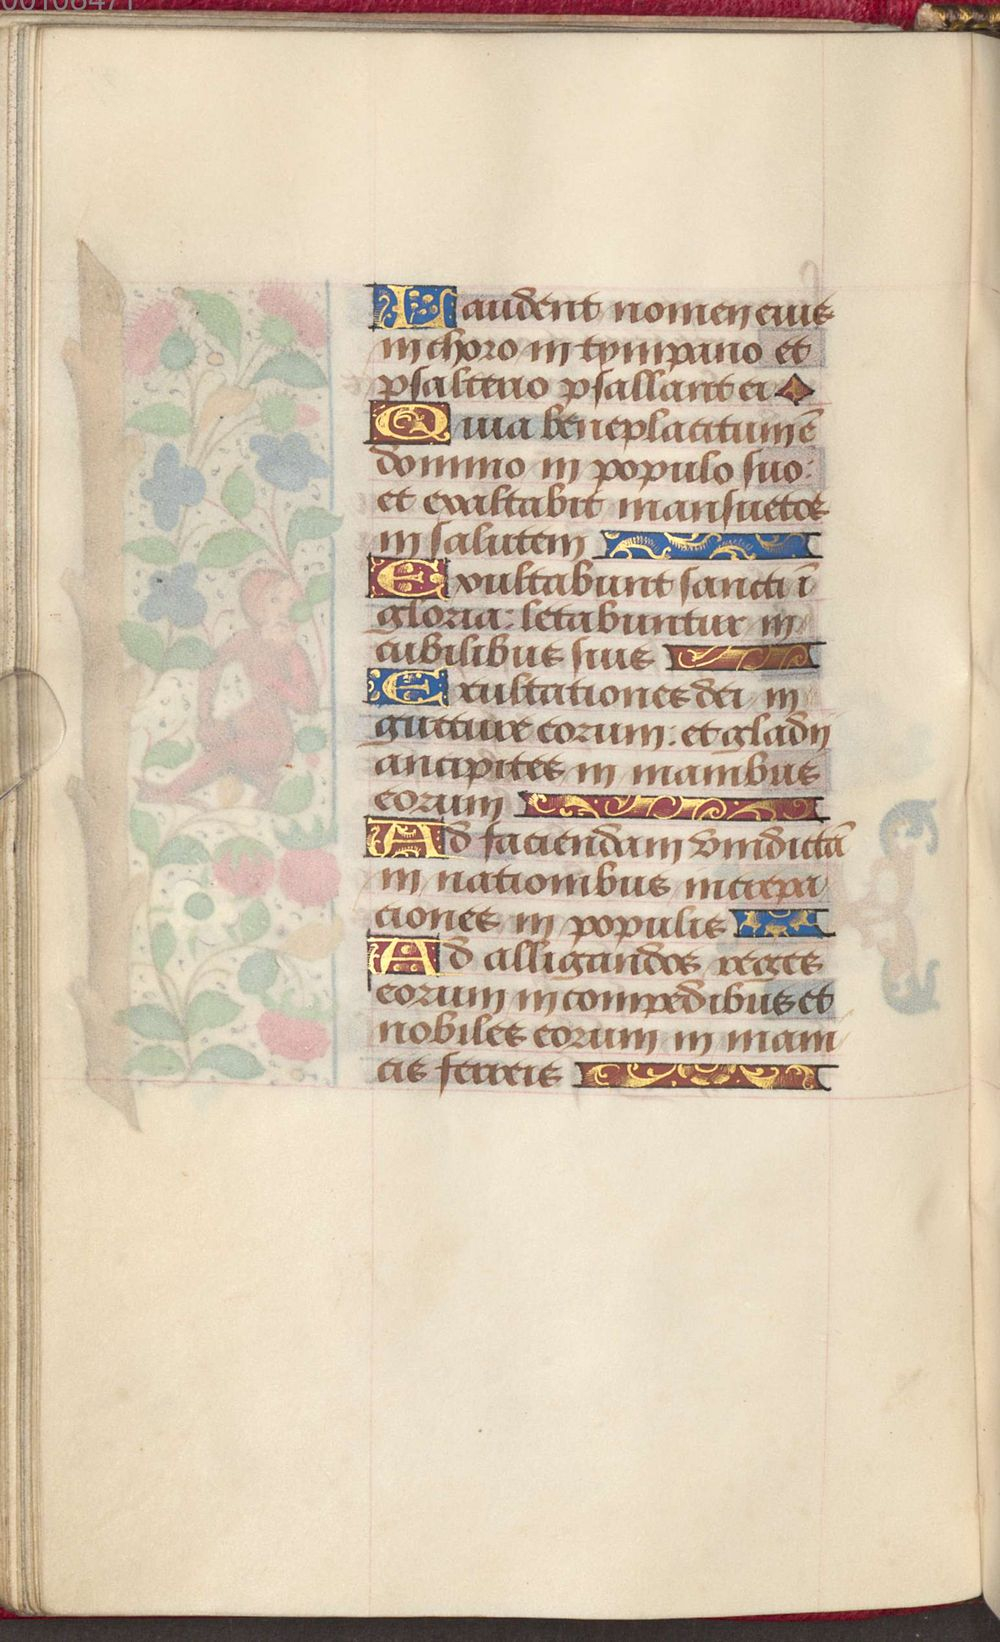 00108471
Laudent nomen eius
in choro in tympano et
psalterio psallant ei
Quia bn̄eplacitum ē
domino in populo suo:
et exaltabit mansuetos
in salutem
Exultabunt sancti ī
gloria: letabuntur in
cubilibus suis
Exultationes dei in
gutture eorum: et gladii
ancipites in manibus
eorum
Ad faciendam vindictā
in nationibus increpa
ciones in populis
Ad alligandos reges
eorum in compedibus et
nobiles eorum in mani
cis ferreis